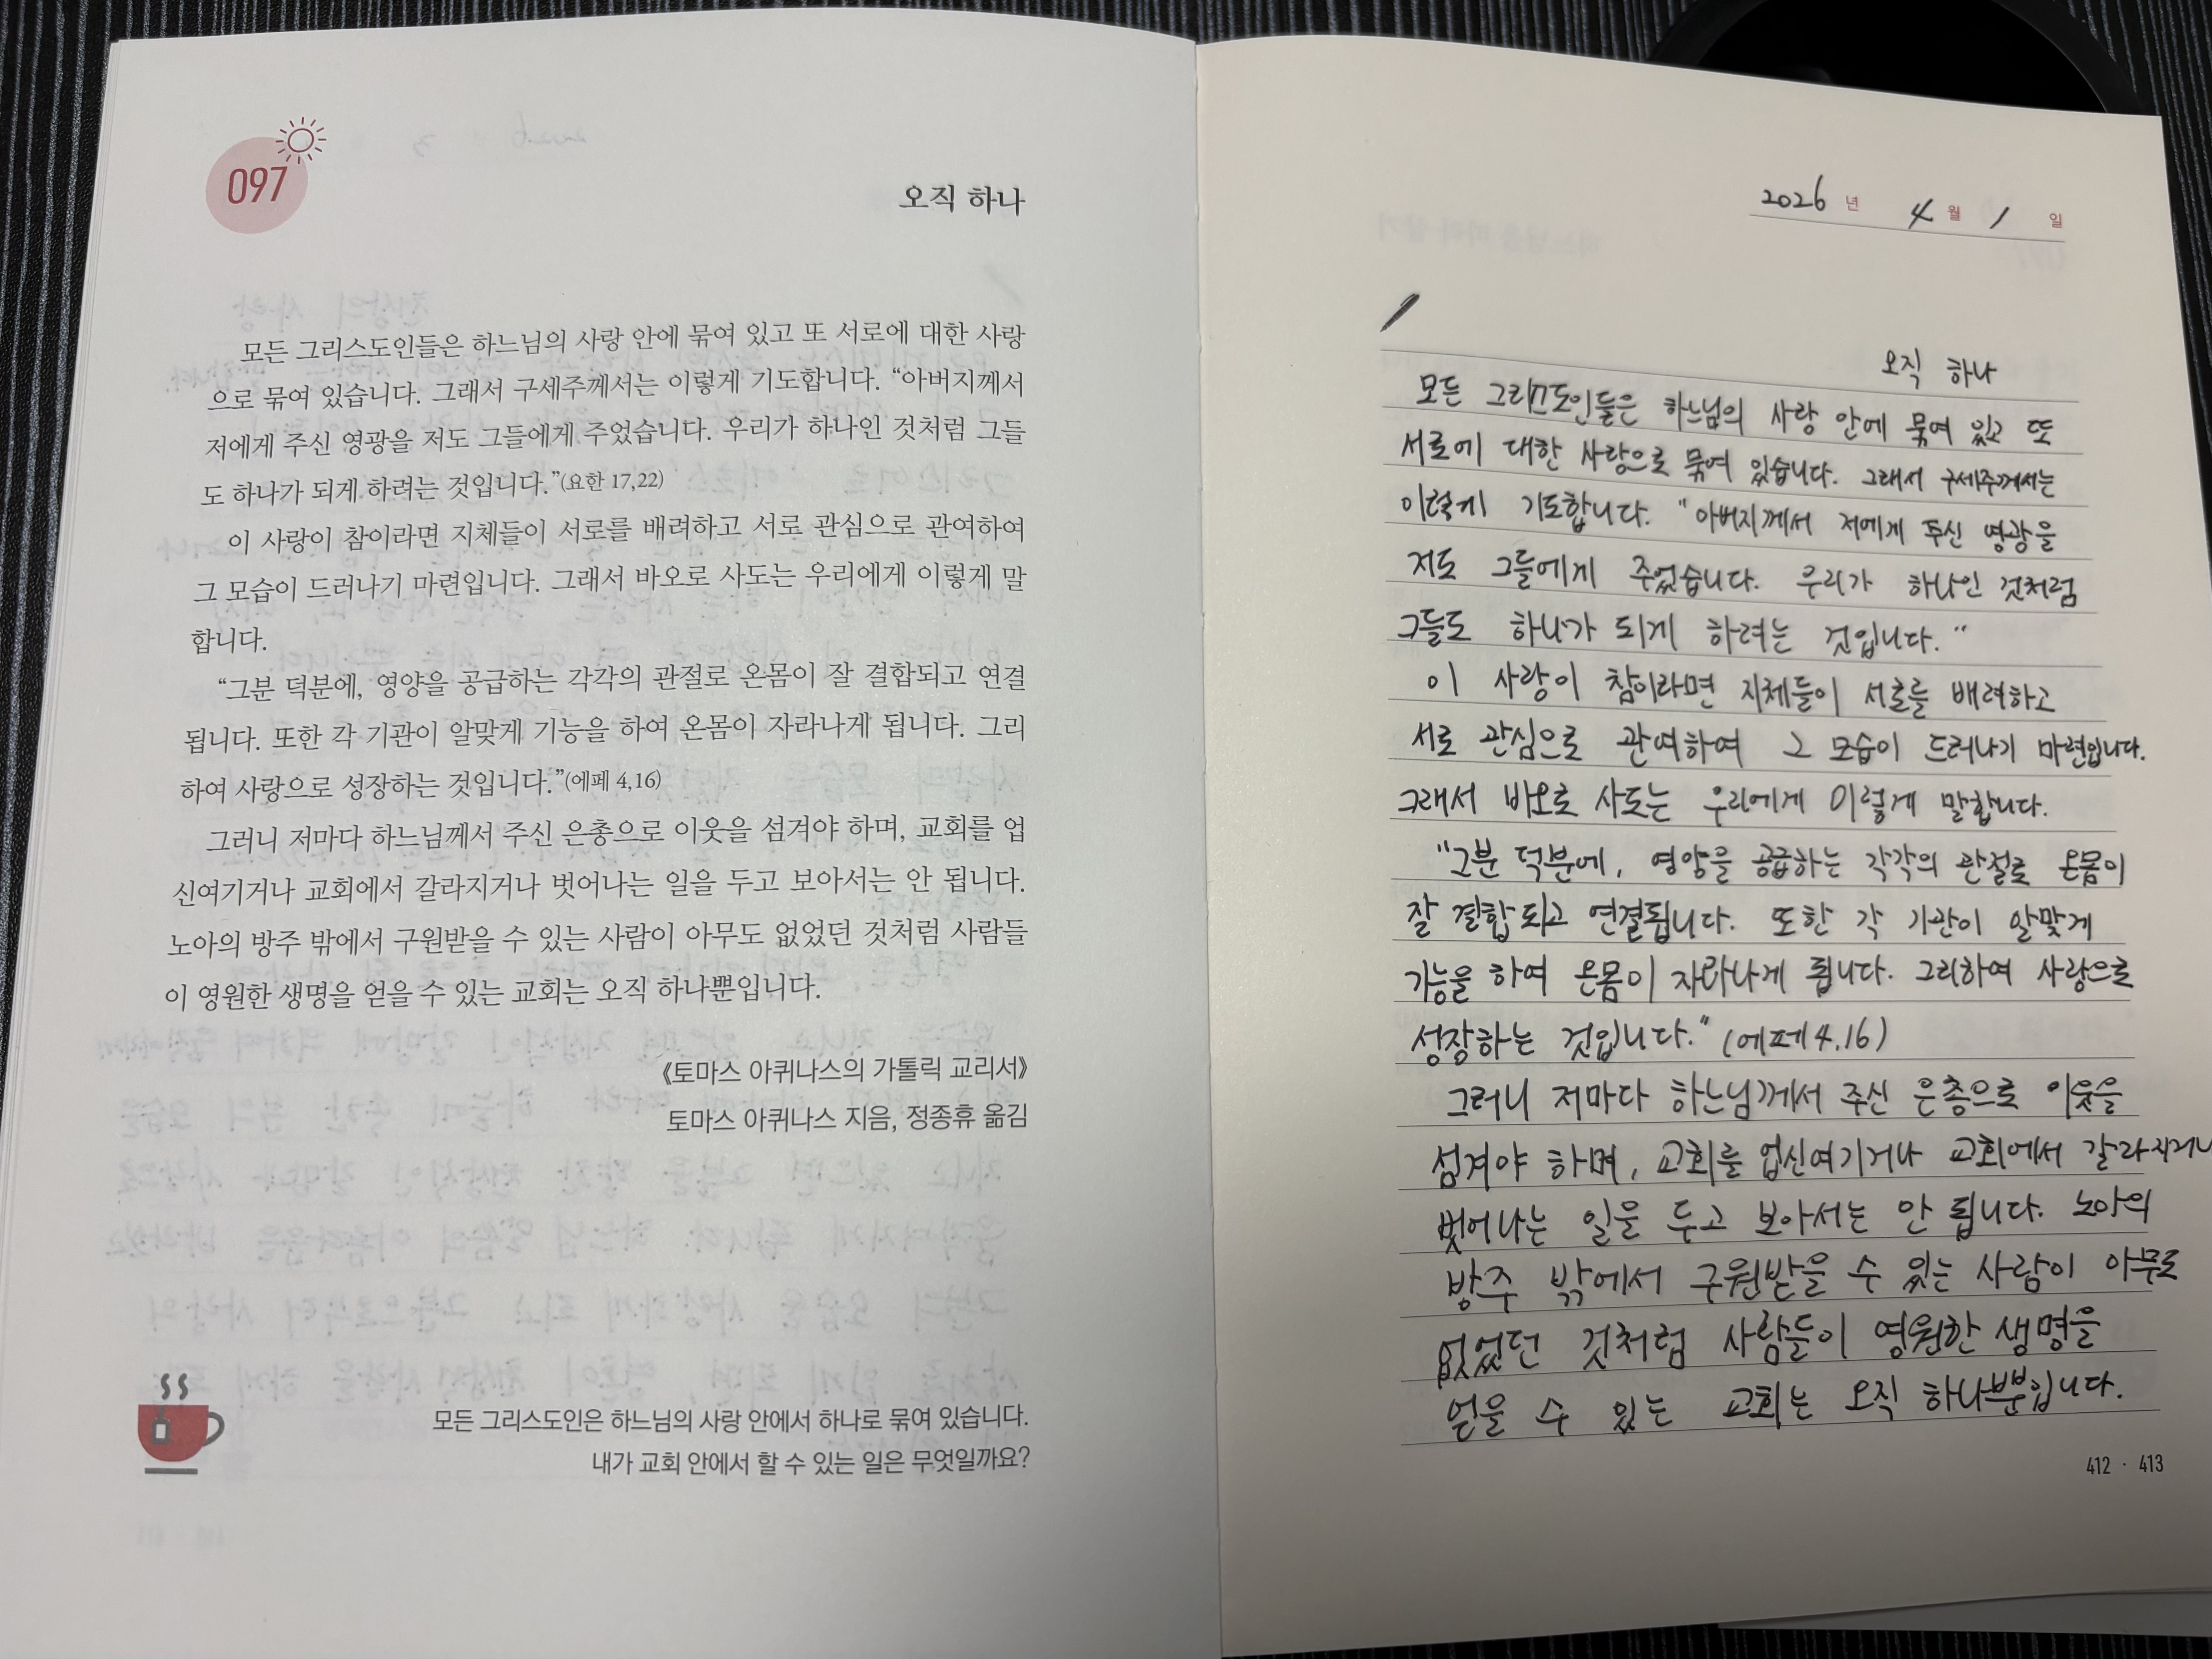 097
오직 하나
모든 그리스도인들은 하느님의 사랑 안에 묶여 있고 또 서로에 대한 사랑
으로 묶여 있습니다. 그래서 구세주께서는 이렇게 기도합니다. “아버지께서
저에게 주신 영광을 저도 그들에게 주었습니다. 우리가 하나인 것처럼 그들
도 하나가 되게 하려는 것입니다.”(요한 17,22)
이 사랑이 참이라면 지체들이 서로를 배려하고 서로 관심으로 관여하여
그 모습이 드러나기 마련입니다. 그래서 바오로 사도는 우리에게 이렇게 말
합니다.
“그분 덕분에, 영양을 공급하는 각각의 관절로 온몸이 잘 결합되고 연결
됩니다. 또한 각 기관이 알맞게 기능을 하여 온몸이 자라나게 됩니다. 그리
하여 사랑으로 성장하는 것입니다.”(에페 4,16)
그러니 저마다 하느님께서 주신 은총으로 이웃을 섬겨야 하며, 교회를 업
신여기거나 교회에서 갈라지거나 벗어나는 일을 두고 보아서는 안 됩니다.
노아의 방주 밖에서 구원받을 수 있는 사람이 아무도 없었던 것처럼 사람들
이 영원한 생명을 얻을 수 있는 교회는 오직 하나뿐입니다.
《토마스 아퀴나스의 가톨릭 교리서》
토마스 아퀴나스 지음, 정종휴 옮김
모든 그리스도인은 하느님의 사랑 안에서 하나로 묶여 있습니다.
내가 교회 안에서 할 수 있는 일은 무엇일까요?
2026 년 4 월 1 일
오직 하나
모든 그리스도인들은 하느님의 사랑 안에 묶여 있고 또
서로에 대한 사랑으로 묶여 있습니다. 그래서 구세주께서는
이렇게 기도합니다. "아버지께서 저에게 주신 영광을
저도 그들에게 주었습니다. 우리가 하나인 것처럼
그들도 하나가 되게 하려는 것입니다."
이 사랑이 참이라면 지체들이 서로를 배려하고
서로 관심으로 관여하여 그 모습이 드러나기 마련입니다.
그래서 바오로 사도는 우리에게 이렇게 말합니다.
"그분 덕분에, 영양을 공급하는 각각의 관절로 온몸이
잘 결합되고 연결됩니다. 또한 각 기관이 알맞게
기능을 하여 온몸이 자라나게 됩니다. 그리하여 사랑으로
성장하는 것입니다." (에페4,16)
그러니 저마다 하느님께서 주신 은총으로 이웃을
섬겨야 하며, 교회를 업신여기거나 교회에서 갈라지거나
벗어나는 일을 두고 보아서는 안 됩니다. 노아의
방주 밖에서 구원받을 수 있는 사람이 아무도
없었던 것처럼 사람들이 영원한 생명을
얻을 수 있는 교회는 오직 하나뿐입니다.
412 · 413